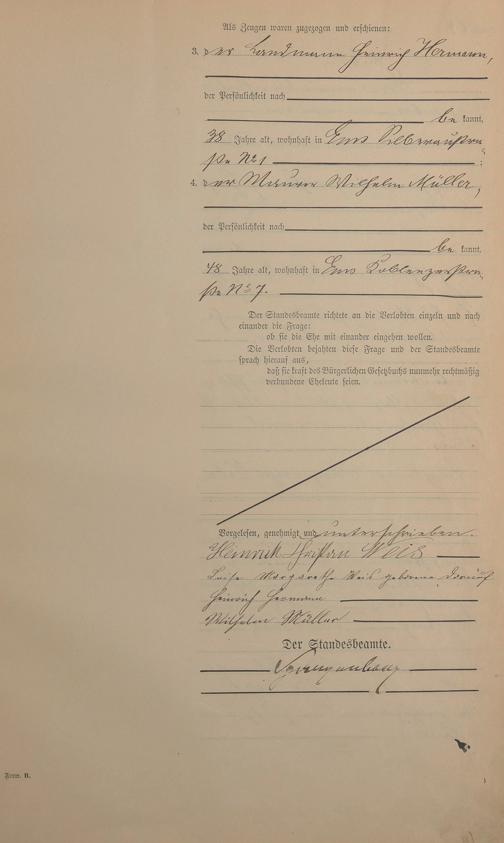 Als Zeugen waren zugezogen und erschienen:
3. der Landmann Heinrich Hermann,
der Persönlichkeit nach
be kannt,
38 Jahre alt, wohnhaft in Ems Silberaustra-
ße No 1 ;
4. der Maurer Wilhelm Müller,
der Persönlichkeit nach
be kannt,
48 Jahre alt, wohnhaft in Ems Koblenzerstra-
ße No 7.
Der Standesbeamte richtete an die Verlobten einzeln und nach
einander die Frage:
ob sie die Ehe mit einander eingehen wollen.
Die Verlobten bejahten diese Frage und der Standesbeamte
sprach hierauf aus,
daß sie kraft des Bürgerlichen Gesetzbuchs nunmehr rechtmäßig
verbundene Eheleute seien.
Vorgelesen, genehmigt und unterschrieben.
Heinrich Christian Weis
Luise Margarethe Weis geborene
Heinrich Hermann
Wilhelm Müller
Der Standesbeamte.
Form. B.